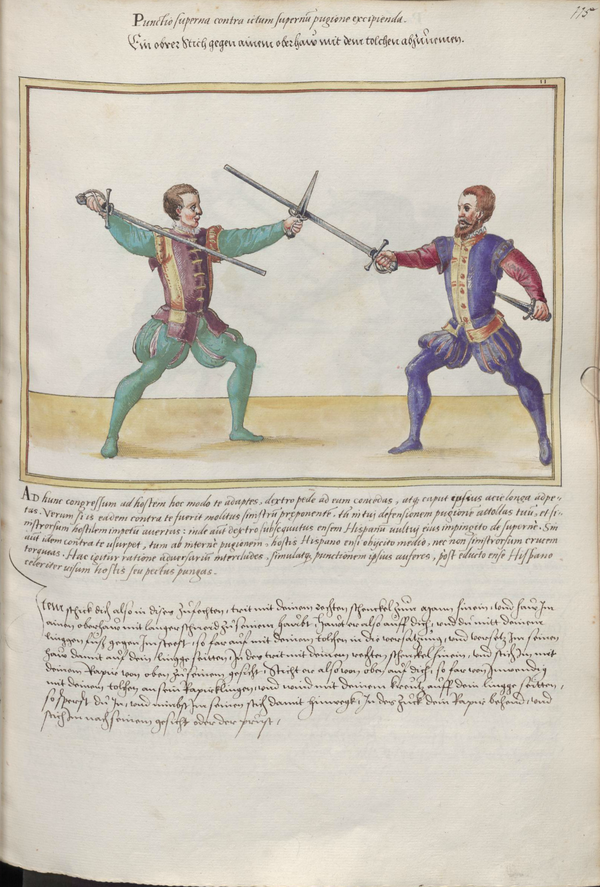 115
Punctio superna contra ictum supernũ pugione excipienda.
Ein obrer Stich gegen ainem oberhaw mit dem tolchen abzunemen.
11
AD hunc congressum ad hostem hoc modo te adaptes, dextro pede ad eum concedas, atq; caput acie longa adpe-
tas. Verum si is eadem contra te fuerit molitus sinistrũ preponente in tui defensionem pugione attollas tuũ, et si-
nistrorsum hostilem impetũ avertas: inde aut dextro subsequutus ensem Hispanũ vultuj eius impingito de superne. Sin
aut idem contra te usurpet, tum ab interne pugionem hostis Hispano ensi obijcito medio, nec non sinistrorsum crucem
torqueas. Hac igitur ratione adversariũ intercludes. simulatq; punctionem ipsius auferes, post educto ense Hispano
celeriter visum hostis seu pectus pungas.
Item schick dich also in diser Zufechten, trit mit deinem rechten schenckel zum hinein, und haw Im
ainen oberhaw mit langer schneid zu seinem haubt. Hawt er also auff dich, und du mit deinem
linggen fuß gegen Im steest, so far auf mit deinem tolchen in die versatzung, und versetz Im seinen
haw damit auf dein lingge seitten In des trit mit deinem rechten schenckel hinein, und stich Im mit
deinem Rapier von oben zu seinem gesicht. Sticht er also von oben auf dich, so far von Inwendig
mit deinem tolchen an sein Rapier klingen, und wind mit deinem kreutz auff dein lingge seitten,
so sperst du In, und nimbst Im seinen stich damit hinwegk, In des zuck dein Rapier behend, und
stich Im nach seinem gesicht oder der prust,